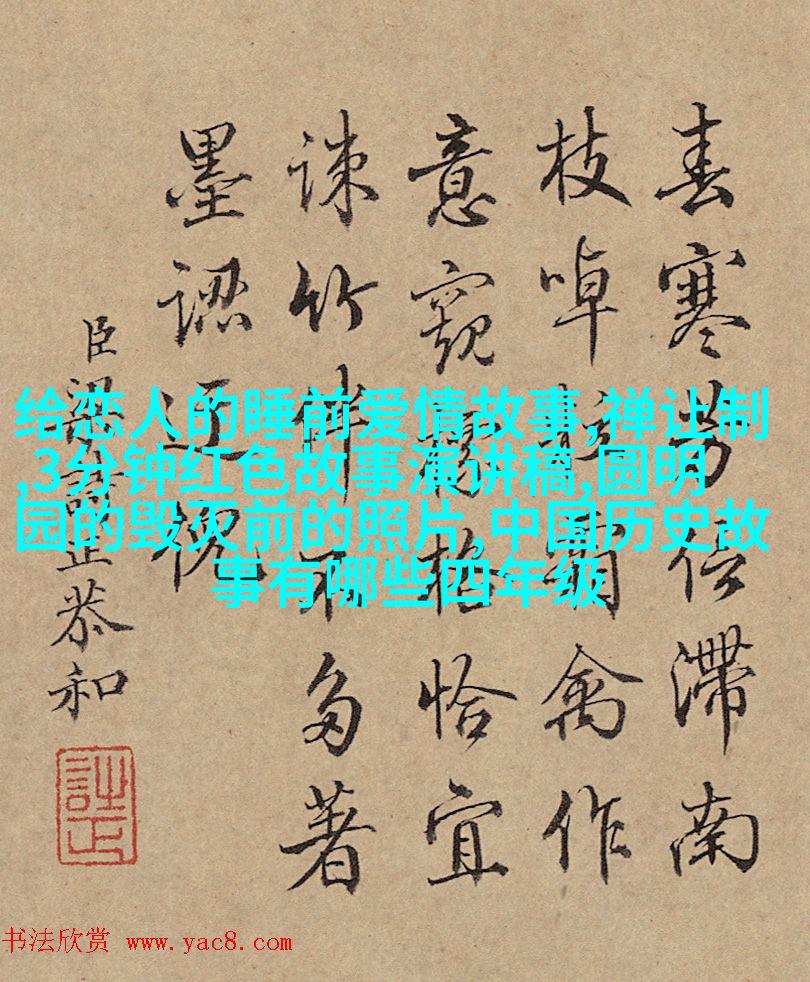 给恋人的睡前爱情故事,禅让制
,3分钟红色故事演讲稿,圆明
园的毁灭前的照片,中国历史故
事有哪些四年级
春寒芳信滯南
枝啅霜禽作
意窺格恰宜
疎竹伴不多著
墨認江
臣梁詩正恭和
詩正
书法欣赏 www.yac8.com